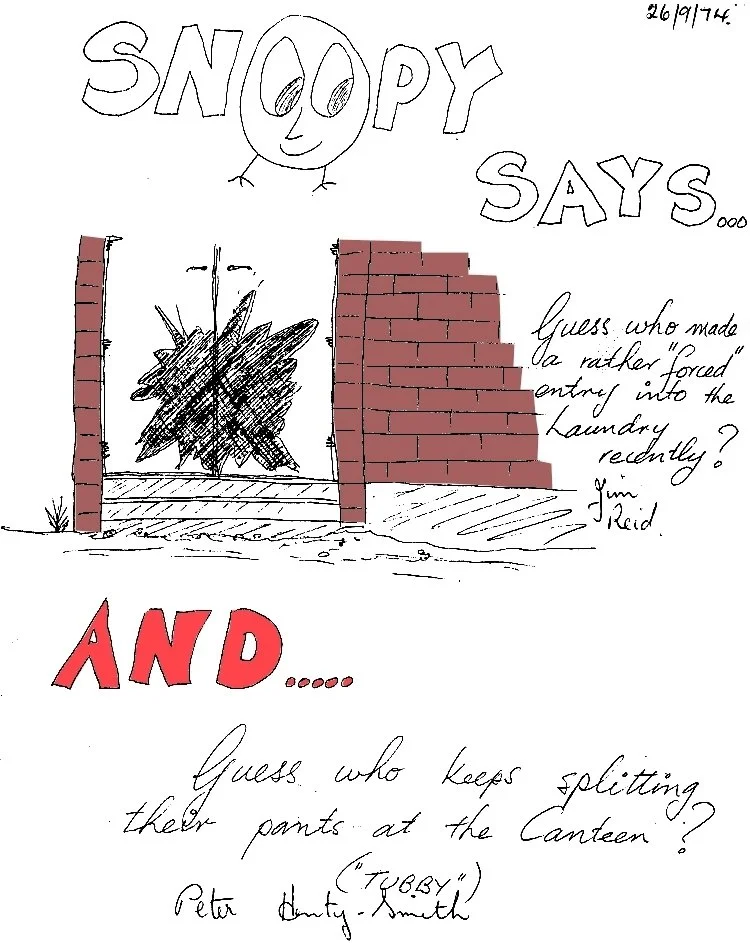 26/9/74.
SNOOPY
SAYS...
Guess who made
a rather "forced"
entry into the
Laundry
recently?
Jim
Reid.
AND.....
Guess who keeps splitting
their pants at the Canteen?
("TUBBY")
Peter Henty-Smith